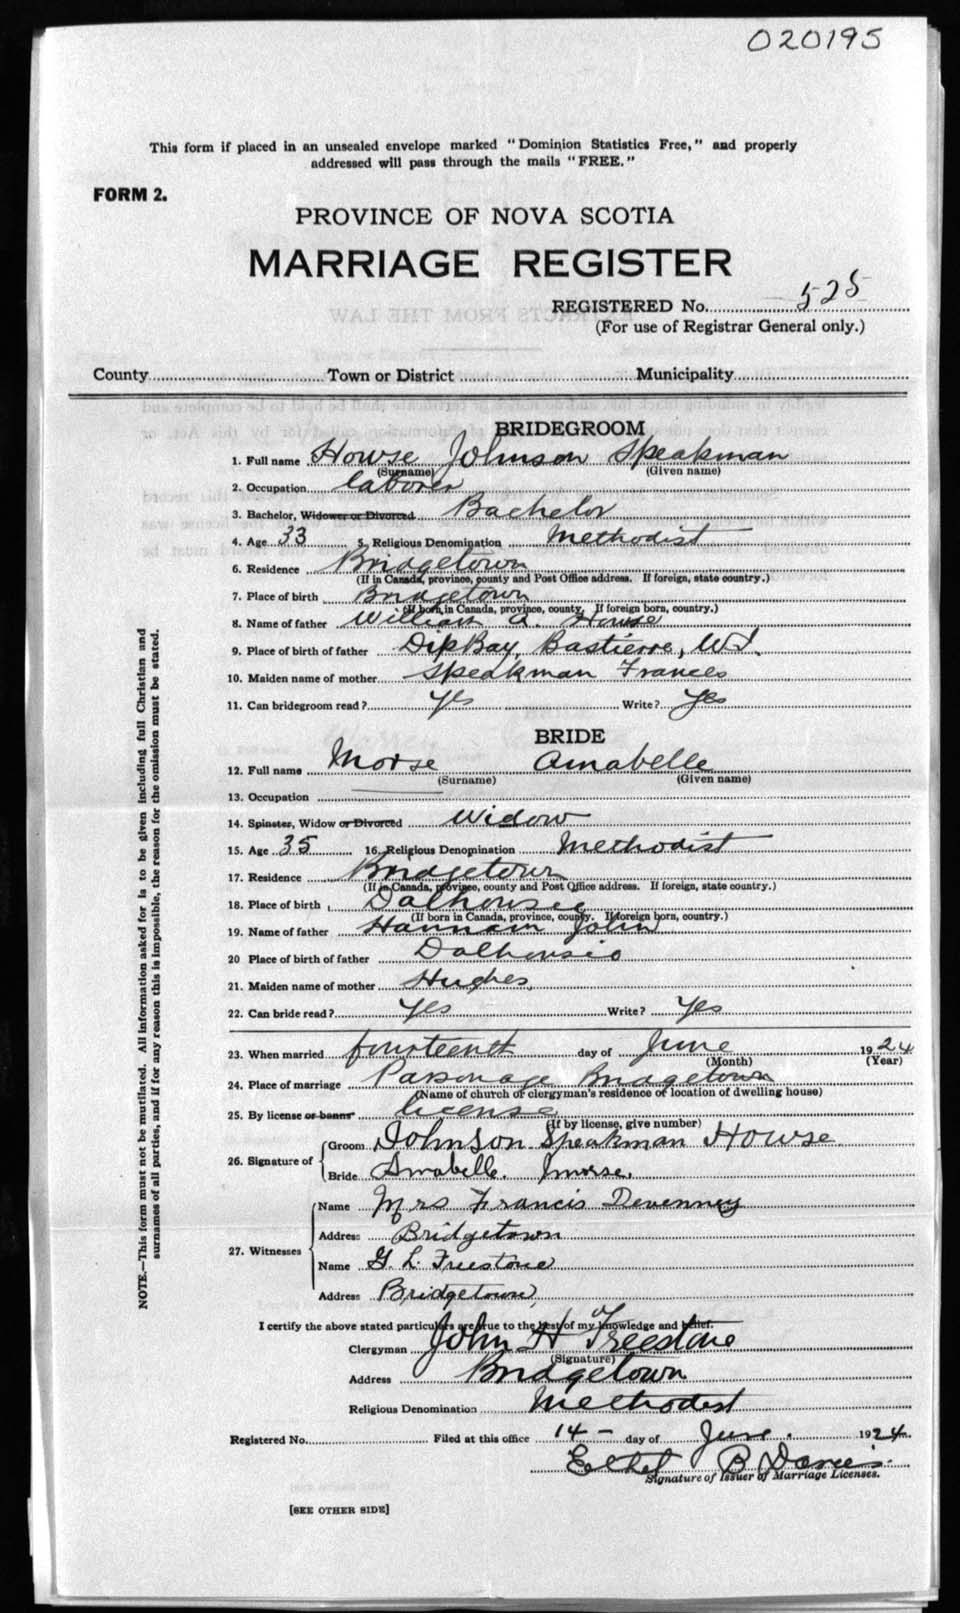 020195
This form if placed in an unsealed envelope marked "Dominion Statistics Free," and properly
addressed will pass through the mails "FREE."
FORM 2.
PROVINCE OF NOVA SCOTIA
MARRIAGE REGISTER
REGISTERED No. 525
(For use of Registrar General only.)
County Town or District Municipality
BRIDEGROOM
1. Full name Howse Johnson Speakman
(Surname) (Given name)
2. Occupation laborer
3. Bachelor, Widower or Divorced Bachelor
4. Age 33 5. Religious Denomination Methodist
6. Residence Bridgetown
(If in Canada, province, county and Post Office address. If foreign, state country.)
7. Place of birth Bridgetown
(If born in Canada, province, county. If foreign born, country.)
8. Name of father William A. Howse
9. Place of birth of father DipBay, Bastierre, W.I.
10. Maiden name of mother Speakman Frances
11. Can bridegroom read? Yes Write? Yes
BRIDE
12. Full name Morse Annabelle
(Surname) (Given name)
13. Occupation
14. Spinster, Widow or Divorced Widow
15. Age 35 16. Religious Denomination Methodist
17. Residence Bridgetown
(If in Canada, province, county and Post Office address. If foreign, state country.)
18. Place of birth Dalhousie
(If born in Canada, province, county. If foreign born, country.)
19. Name of father Hannam John
20 Place of birth of father Dalhousie
21. Maiden name of mother Hughes
22. Can bride read? Yes Write? Yes
23. When married fourteenth day of June 1924
(Month) (Year)
24. Place of marriage Parsonage Bridgetown
(Name of church or clergyman's residence or location of dwelling house)
25. By license or banns license
(If by license, give number)
26. Signature of
Groom Johnson Speakman Howse
Bride Annabelle Morse.
27. Witnesses
Name Mrs Francis Devenney
Address Bridgetown
Name G. L. Freestone
Address Bridgetown,
I certify the above stated particulars are true to the best of my knowledge and belief.
Clergyman John H Freestone
(Signature)
Address Bridgetown
Religious Denomination Methodist
Registered No. Filed at this office 14 - day of June. 1924.
Ethel B Davies
Signature of Issuer of Marriage Licenses.
[SEE OTHER SIDE]
NOTE.—This form must not be mutilated. All information asked for is to be given including full Christian and
surnames of all parties, and if for any reason this is impossible, the reason for the omission must be stated.